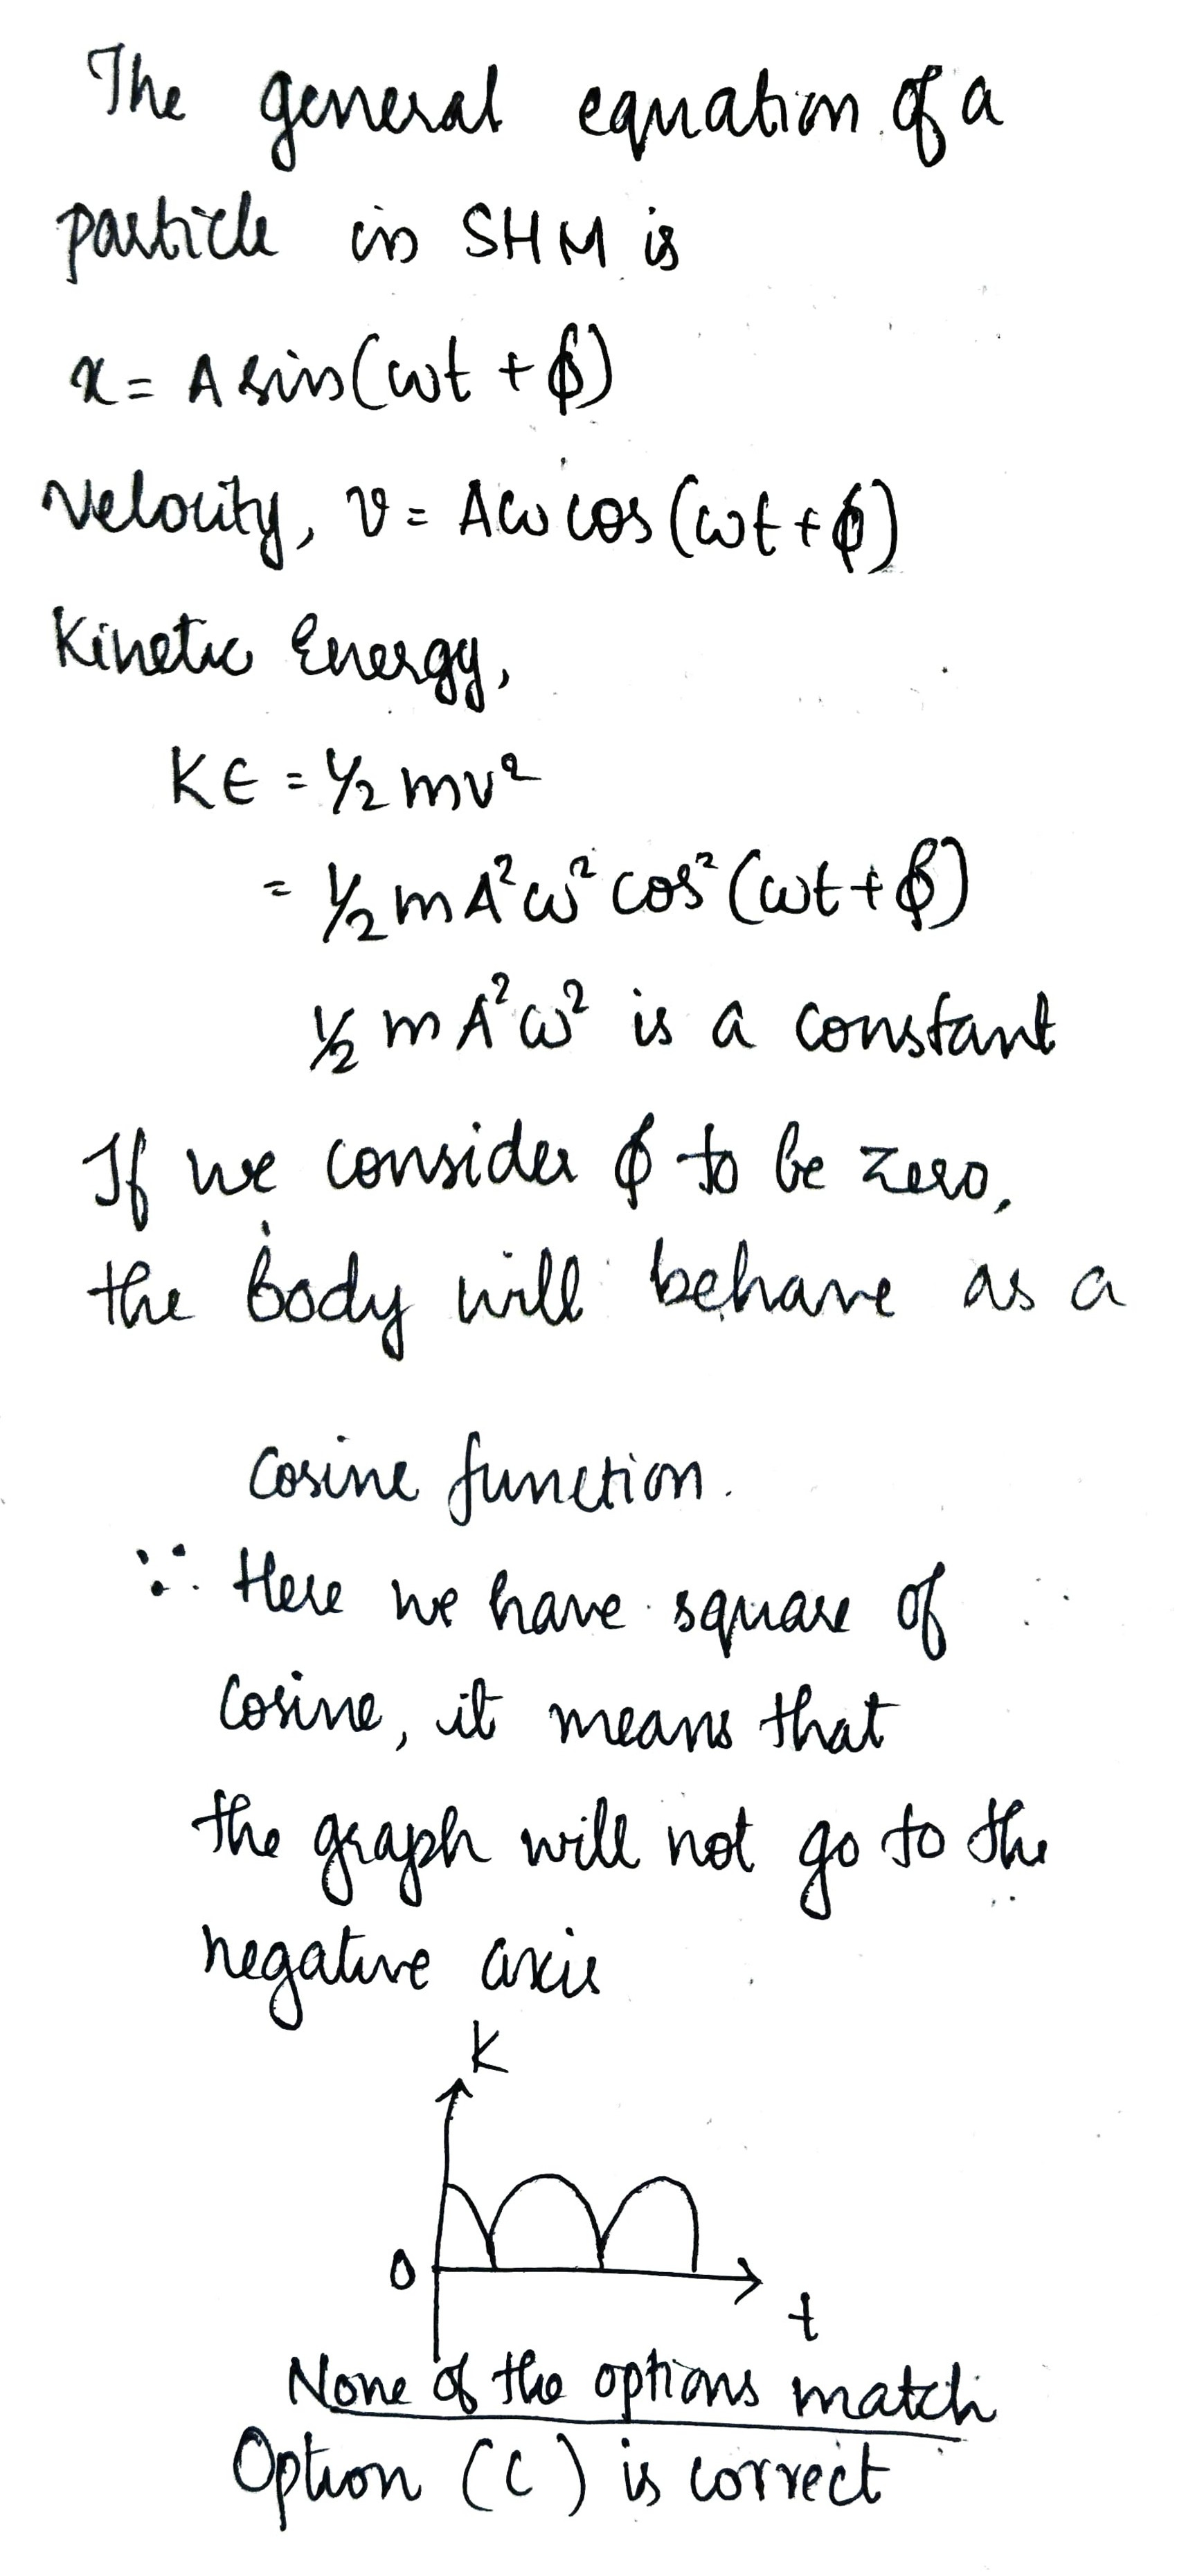 The general equation of a
particle in SHM is
x = A sin(ωt + ϕ)
Velocity, v = Aω cos(ωt + ϕ)
Kinetic Energy,
KE = 1/2 mv²
= 1/2 mA²ω² cos²(ωt + ϕ)
1/2 mA²ω² is a constant
If we consider ϕ to be zero,
the body will behave as a
cosine function.
∵ Here we have square of
cosine, it means that
the graph will not go to the
negative axis
K
0
t
None of the options match
Option (C) is correct